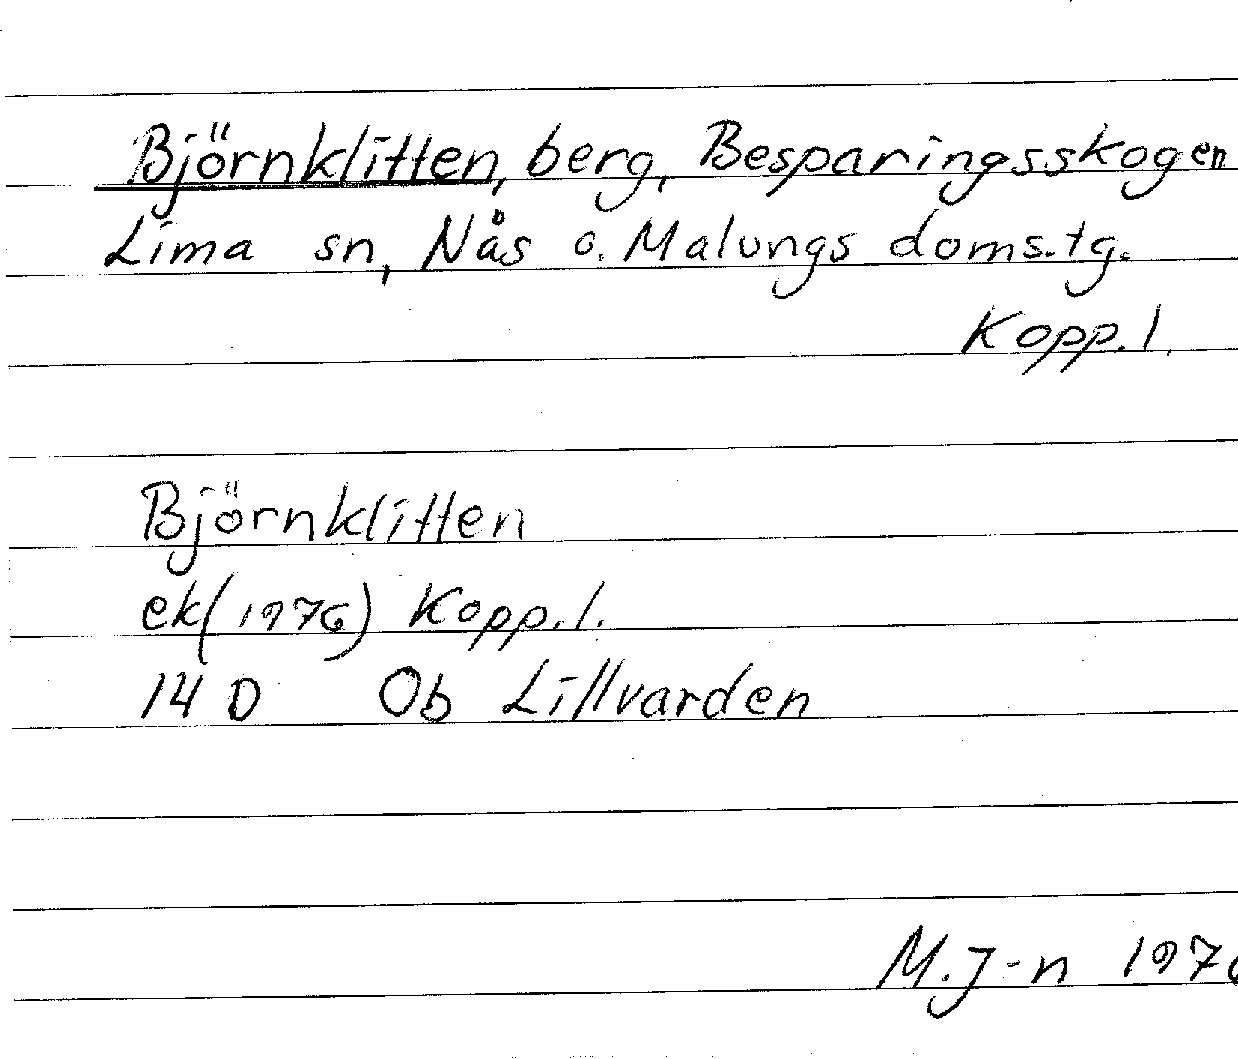 Björnklitten, berg, Besparingsskogen
Lima sn, Nås o. Malungs doms.tg.
Kopp.l.
Björnklitten
ek(1976) Kopp.l.
14 D Ob Lillvarden
M.J-n 1976